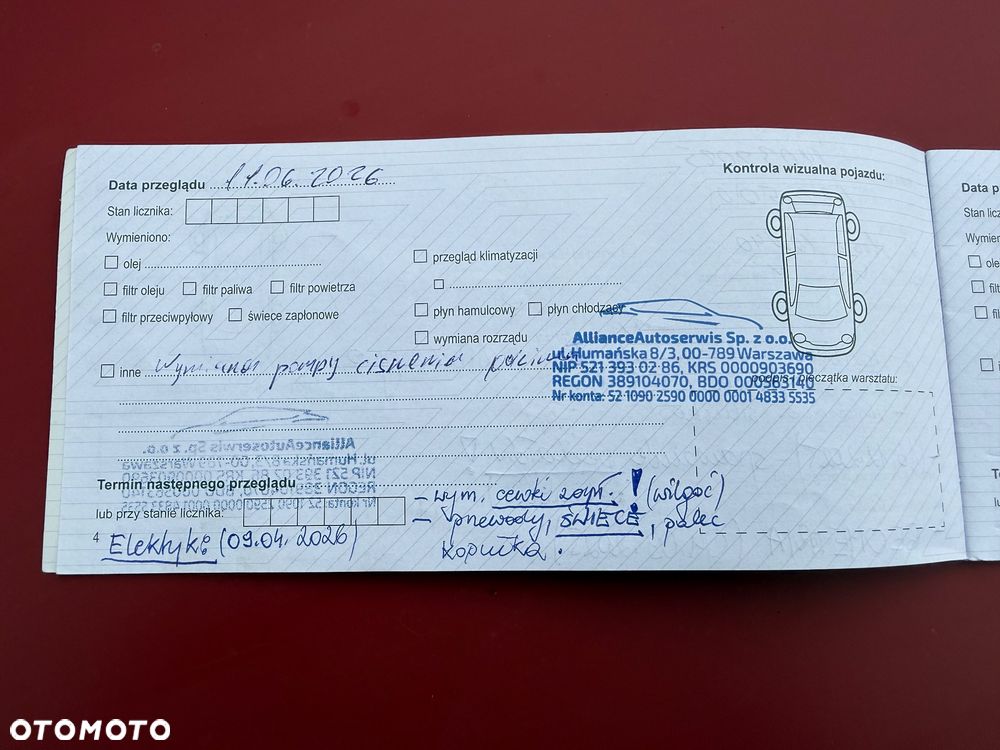 Data przeglądu 11.06.2026
Kontrola wizualna pojazdu:
Stan licznika:
Wymieniono:
olej
przegląd klimatyzacji
filtr oleju filtr paliwa filtr powietrza
filtr przeciwpyłowy świece zapłonowe
płyn hamulcowy płyn chłodzący
wymiana rozrządu
AllianceAutoserwis Sp. z o.o.
ul. Humańska 8/3, 00-789 Warszawa
NIP 521 393 02 86, KRS 0000903690
REGON 389104070, BDO 000563140
Nr konta: 52 1090 2590 0000 0001 4833 5535
inne Wymiana pompy ciśnienia
podpis i pieczątka warsztatu:
AllianceAutoserwis Sp. z o.o.
ul. Humańska 8/3, 00-789 Warszawa
NIP 521 393 02 86, KRS 0000903690
REGON 389104070, BDO 000563140
Nr konta: 52 1090 2590 0000 0001 4833 5535
Termin następnego przeglądu
lub przy stanie licznika:
- wym. cewki zapł. ! (wilgoć)
- przewody, ŚWIECE!, palec
kopułka.
4 Elektyk: (09.04.2026)
Data p
Stan licz
Wymien
ole
filt
filt
i
T
lu
OTOMOTO